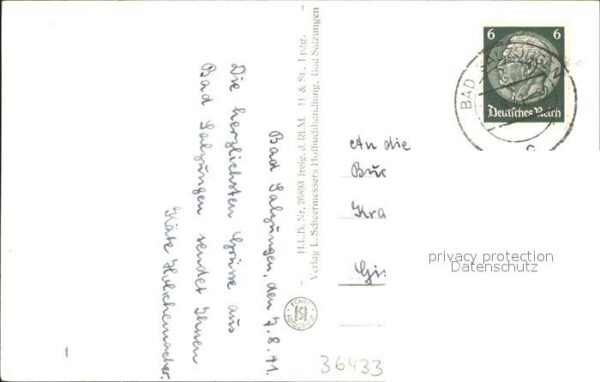 Bad Salzungen, den 7.8.41.
Die herzlichsten Grüsse aus
Bad Salzungen sendet Ihnen
Käte
H.L.B. Nr. 26893 freig. d. RLM
Verlag L. Scheermessers Hofbuchhandlung, Bad Salzungen
6 6
Deutsches Reich
BAD
An die
privacy protection
Datenschutz
36433
1